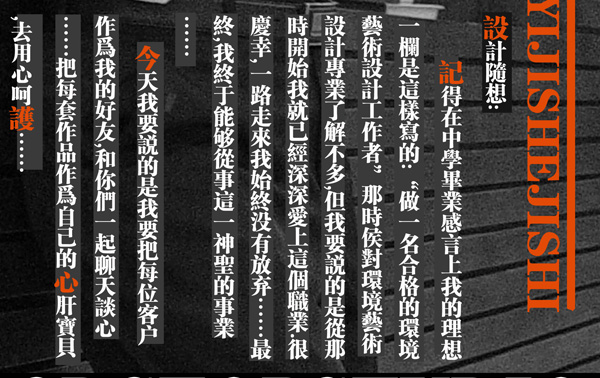 YIJISHEJISHI
設計隨想:
記得在中學畢業感言上我的理想
一欄是這樣寫的:“做一名合格的環境
藝術設計工作者”那時侯對環境藝術
設計專業了解不多,但我要説的是從那
時開始我就已經深深愛上這個職業 很
慶幸,一路走來我始終没有放弃……最
終,我終于能够從事這一神聖的事業
……
今天我要説的是我要把每位客户
作爲我的好友,和你們一起聊天談心
……把每套作品作爲自己的心肝寶貝
,去用心呵護……